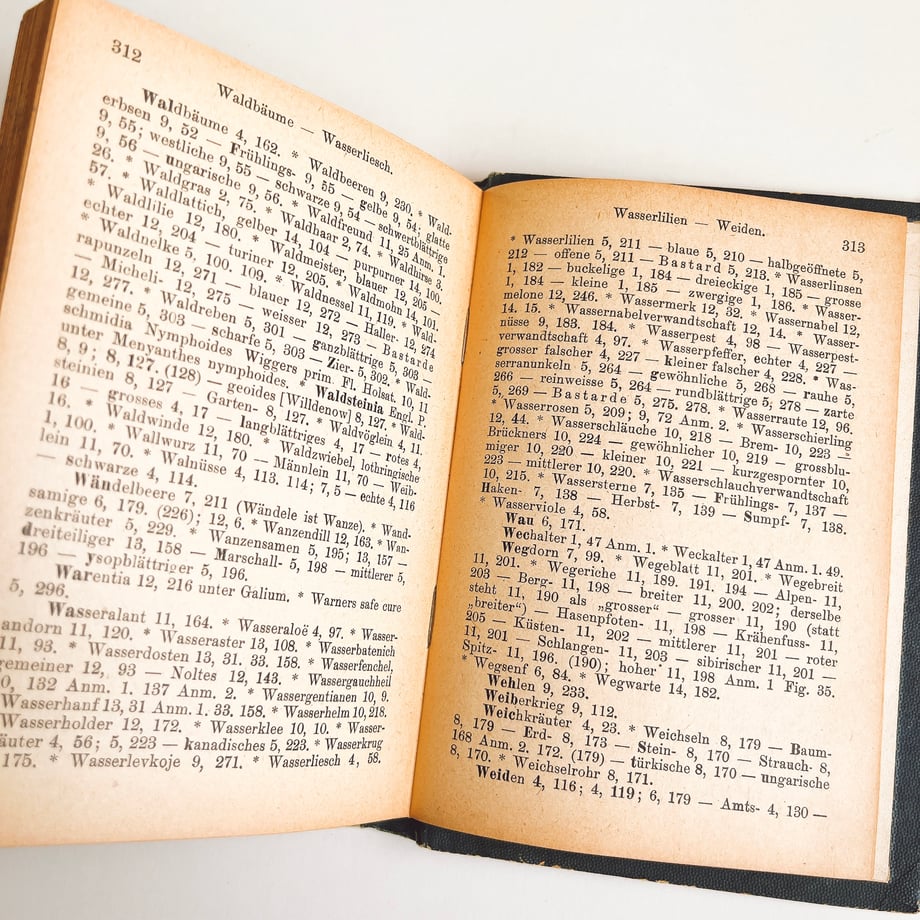 312
Waldbäume — Wasserliesch.
Waldbäume 4, 162. * Waldbeeren 9, 230. * Wald-
erbsen 9, 52 — Frühlings- 9, 55 — gelbe 9, 54; glatte
9, 55; westliche 9, 55 — schwarze 9, 54 — schwertblättrige
9, 56 — ungarische 9, 56. * Waldfreund 11, 25 Anm. 1.
26. * Waldgras 2, 75. * Waldhaar 2, 74. * Waldhirse 3.
57. * Waldlattich, gelber 14, 104 — purpurner 14, 100.
* Waldlilie 12, 180. * Waldmeister, blauer 12, 205 —
echter 12, 204 — turiner 12, 205. * Waldmohn 14, 101.
* Waldnelke 5, 100. 109. * Waldnessel 11, 119. * Wald-
rapunzeln 12, 271 — blauer 12, 272 — Haller- 12, 274
— Micheli- 12, 275 — weisser 12, 273 — Bastarde
12, 277. * Waldreben 5, 301 — ganzblättrige 5, 303 —
gemeine 5, 303 — scharfe 5, 303 — Zier- 5, 302. * Wald-
schmidia Nymphoides Wiggers prim. Fl. Holsat. 10, 11
unter Menyanthes nymphoides. * Waldsteinia Engl. P.
8, 9; 8, 127. (128) — geoides [Willdenow] 8, 127. * Wald-
steinien 8, 127 — Garten- 8, 127. * Waldvöglein 4, 11.
16 — grosses 4, 17 — langblättriges 4, 17 — rotes 4,
16. * Waldwinde 12, 180. * Waldzwiebel, lothringische
1, 100. * Wallwurz 11, 70 — Männlein 11, 70 — Weib-
lein 11, 70. * Walnüsse 4, 113. 114; 7, 5 — echte 4, 116
— schwarze 4, 114.
Wändelbeere 7, 211 (Wändele ist Wanze). * Wand-
samige 6, 179. (226); 12, 6. * Wanzendill 12, 163. * Wan-
zenkräuter 5, 229. * Wanzensamen 5, 195; 13, 157 —
dreiteiliger 13, 158 — Marschall- 5, 198 — mittlerer 5,
196 — ysopblättriger 5, 196.
Warentia 12, 216 unter Galium. * Warners safe cure
5, 296.
Wasseralant 11, 164. * Wasseraloë 4, 97. * Wasser-
andorn 11, 120. * Wasseraster 13, 108. * Wasserbatenich
11, 93. * Wasserdosten 13, 31. 33. 158. * Wasserfenchel,
gemeiner 12, 93 — Noltes 12, 143. * Wassergauchheil
0, 132 Anm. 1. 137 Anm. 2. * Wassergentianen 10, 9.
Wasserhanf 13, 31 Anm. 1. 33. 158. * Wasserhelm 10, 218.
Wasserholder 12, 172. * Wasserklee 10, 10. * Wasser-
äuter 4, 56; 5, 223 — kanadisches 5, 223. * Wasserkrug
175. * Wasserlevkoje 9, 271. * Wasserliesch 4, 58.
Wasserlilien — Weiden.
313
* Wasserlilien 5, 211 — blaue 5, 210 — halbgeöffnete 5,
212 — offene 5, 211 — Bastard 5, 213. * Wasserlinsen
1, 182 — buckelige 1, 184 — dreieckige 1, 185 — grosse
1, 184 — kleine 1, 185 — zwergige 1, 186. * Wasser-
melone 12, 246. * Wassermerk 12, 32. * Wassernabel 12,
14. 15. * Wassernabelverwandtschaft 12, 14. * Wasser-
nüsse 9, 183. 184. * Wasserpest 4, 98 — Wasserpest-
verwandtschaft 4, 97. * Wasserpfeffer, echter 4, 227 —
grosser falscher 4, 227 — kleiner falscher 4, 228. * Was-
serranunkeln 5, 264 — gewöhnliche 5, 268 — rauhe 5,
266 — reinweisse 5, 264 — rundblättrige 5, 278 — zarte
5, 269 — Bastarde 5, 275. 278. * Wasserraute 12, 96.
* Wasserrosen 5, 209; 9, 72 Anm. 2. * Wasserschierling
12, 44. * Wasserschläuche 10, 218 — Brem- 10, 223 —
Brückners 10, 224 — gewöhnlicher 10, 219 — grossblu-
miger 10, 220 — kleiner 10, 221 — kurzgespornter 10,
223 — mittlerer 10, 220. * Wasserschlauchverwandtschaft
10, 215. * Wassersterne 7, 135 — Frühlings- 7, 137 —
Haken- 7, 138 — Herbst- 7, 139 — Sumpf- 7, 138.
* Wasserviole 4, 58.
Wau 6, 171.
Wechalter 1, 47 Anm. 1. * Weckalter 1, 47 Anm. 1. 49.
Wegdorn 7, 99. * Wegeblatt 11, 201. * Wegebreit
11, 201. * Wegeriche 11, 189. 191. 194 — Alpen- 11,
203 — Berg- 11, 198 — breiter 11, 200. 202; derselbe
steht 11, 190 als „grosser“ — grosser 11, 190 (statt
„breiter“) — Hasenpfoten- 11, 198 — Krähenfuss- 11,
205 — Küsten- 11, 202 — mittlerer 11, 201 — roter
11, 201 — Schlangen- 11, 203 — sibirischer 11, 201 —
Spitz- 11, 196. (190); hoher 11, 198 Anm. 1 Fig. 35.
* Wegsenf 6, 84. * Wegwarte 14, 182.
Wehlen 9, 233.
Weiberkrieg 9, 112.
Weichkräuter 4, 23. * Weichseln 8, 179 — Baum-
8, 179 — Erd- 8, 173 — Stein- 8, 170 — Strauch- 8,
168 Anm. 2. 172. (179) — türkische 8, 170 — ungarische
8, 170. * Weichselrohr 8, 171.
Weiden 4, 116; 4, 119; 6, 179 — Amts- 4, 130 —